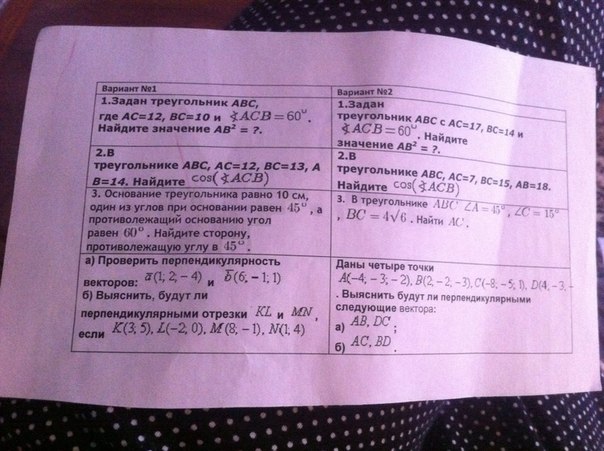 Вариант №1
1.Задан треугольник ABC,
где AC=12, BC=10 и ∢ACB = 60°.
Найдите значение AB² = ?.
2.В
треугольнике ABC, AC=12, BC=13, A
B=14. Найдите cos(∢ACB)
3. Основание треугольника равно 10 см,
один из углов при основании равен 45°, а
противолежащий основанию угол
равен 60°. Найдите сторону,
противолежащую углу в 45°.
а) Проверить перпендикулярность
векторов: a(1; 2; −4) и b(6; −1; 1)
б) Выяснить, будут ли
перпендикулярными отрезки KL и MN,
если K(3; 5), L(−2; 0), M(8; −1), N(1; 4)
Вариант №2
1.Задан
треугольник ABC с AC=17, BC=14 и
∢ACB = 60°. Найдите
значение AB² = ?.
2.В
треугольнике ABC, AC=7, BC=15, AB=18.
Найдите cos(∢ACB)
3. В треугольнике ABC ∠A = 45°, ∠C = 15°
, BC = 4√6. Найти AC.
Даны четыре точки
A(−4; −3; −2), B(2; −2; −3), C(−8; −5; 1), D(4; −3; −
. Выяснить будут ли перпендикулярными
следующие вектора:
а) AB, DC ;
б) AC, BD .